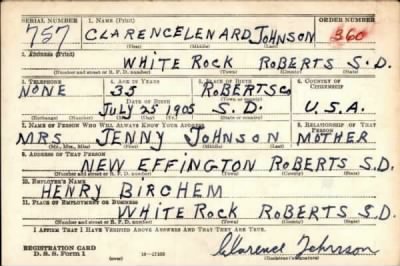 SERIAL NUMBER 1. NAME (Print) ORDER NUMBER
757 CLARENCE LENARD JOHNSON 360
(First) (Middle) (Last)
2. ADDRESS (Print)
WHITE ROCK ROBERTS S.D.
(Number and street or R. F. D. number) (Town) (County) (State)
3. TELEPHONE 4. AGE IN YEARS 5. PLACE OF BIRTH 6. COUNTRY OF CITIZENSHIP
NONE 35 ROBERTS CO
DATE OF BIRTH (Town or county)
JULY 25 1905 S. D. U.S.A.
(Exchange) (Number) (Mo.) (Day) (Yr.) (State or country)
7. NAME OF PERSON WHO WILL ALWAYS KNOW YOUR ADDRESS 8. RELATIONSHIP OF THAT PERSON
MRS. JENNY JOHNSON MOTHER
(Mr., Mrs., Miss) (First) (Middle) (Last)
9. ADDRESS OF THAT PERSON
NEW EFFINGTON ROBERTS S.D.
(Number and street or R. F. D. number) (Town) (County) (State)
10. EMPLOYER'S NAME
HENRY BIRCHEM
11. PLACE OF EMPLOYMENT OR BUSINESS
WHITE ROCK ROBERTS S.D.
(Number and street or R. F. D. number) (Town) (County) (State)
I AFFIRM THAT I HAVE VERIFIED ABOVE ANSWERS AND THAT THEY ARE TRUE.
REGISTRATION CARD
D. S. S. Form 1 Clarence Johnson
(Registrant's signature)